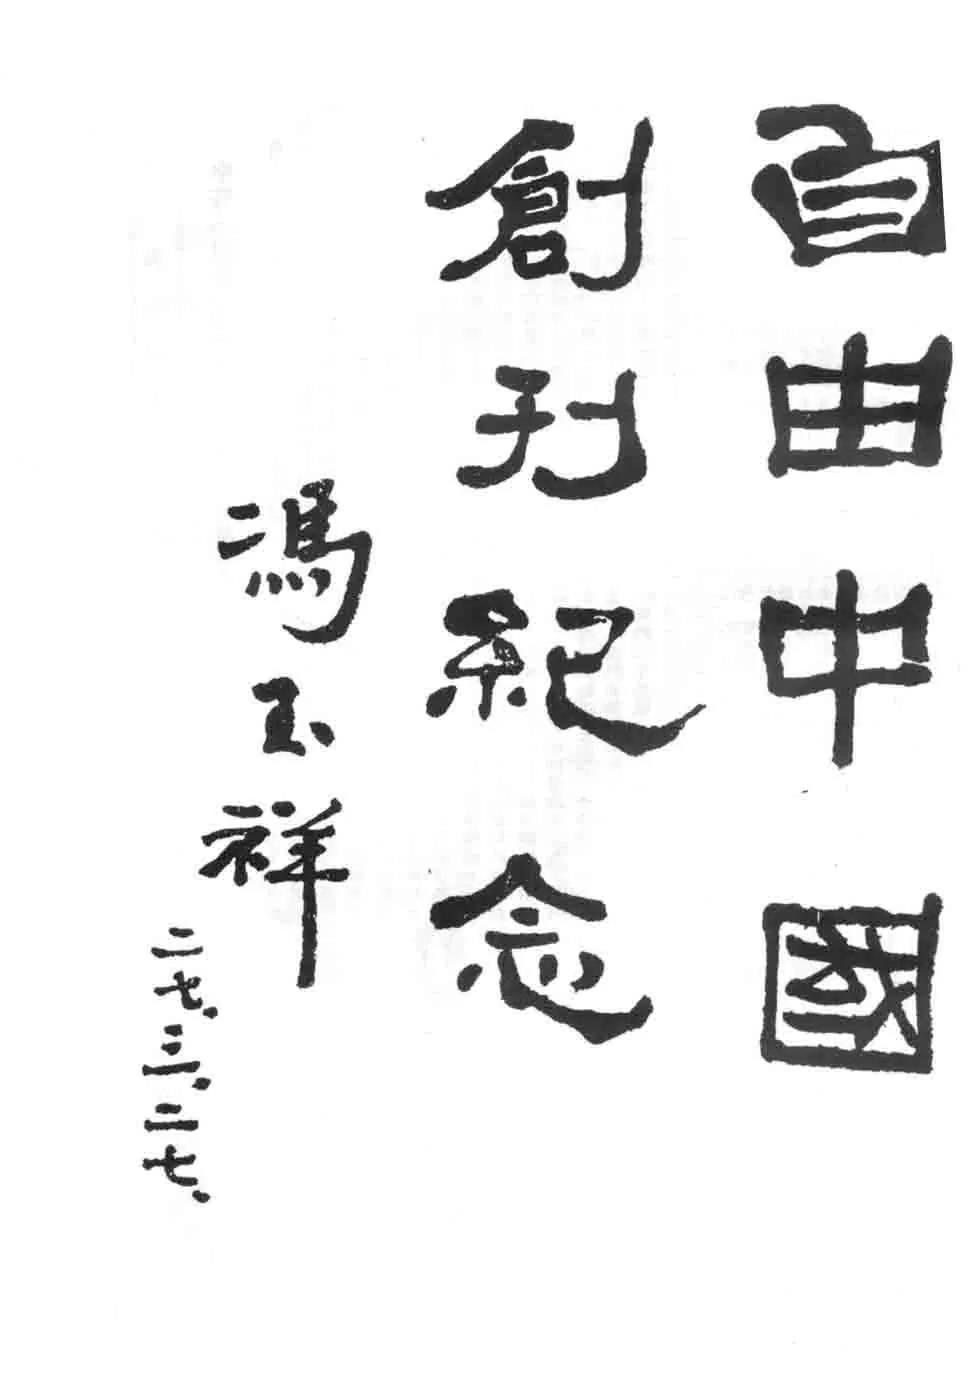 自由中國
創刊紀念
馮玉祥
二七.三.二七.